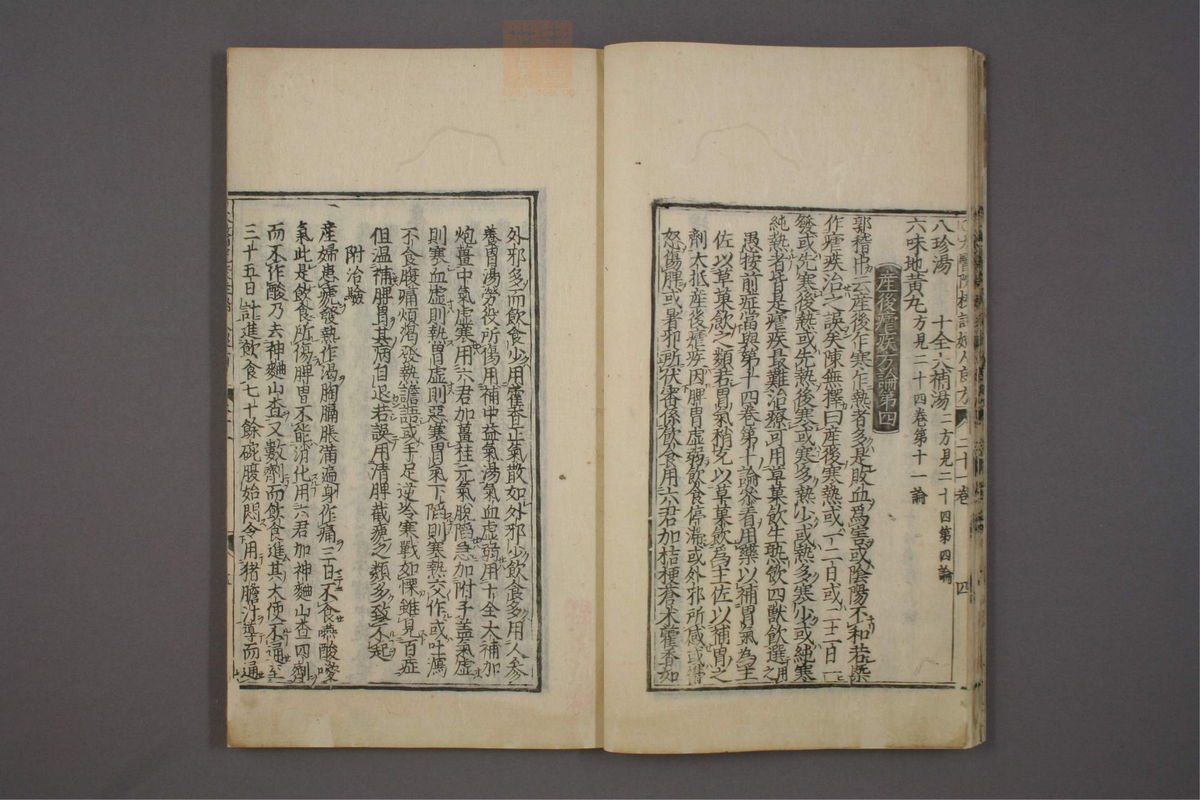 八珍湯　十全大補湯二方見二十四第四論
六味地黄丸方見二十四卷第十一論
產後瘧疾方論第四
郭稽中云產後作寒作熱者多是敗血爲害或陰陽不和若槩
作瘧疾治之誤矣陳無擇曰產後寒熱或一二日或二三日一
發或先寒後熱或先熱後寒或寒多熱少或熱多寒少或純寒
純熱者皆是瘧疾最難治療可用草菓飲生熟飲四獸飲選用之
愚按前症當與第十四卷第十論叅看用藥以補胃氣為主
佐以草菓飲之類若胃氣稍充以草菓飲爲主佐以補胃之
劑大抵產後瘧疾因脾胃虛弱飲食停滯或外邪所感或鬱
怒傷脾或暑邪所伏審係飲食用六君加桔梗蒼朮藿香如
外邪多而飲食少用藿香正氣散如外邪少飲食多用人參
養胃湯勞役所傷用補中益氣湯氣血虛弱用十全大補加
炮薑中氣虛寒用六君加薑桂元氣脫陷急加附子盖氣虛
則寒血虛則熱胃虛則惡寒胃氣下陷則寒熱交作或吐瀉
不食腹痛煩渴發熱譫語或手足逆冷寒戰如慄雖見百症
但温補脾胃其病自退若誤用清脾截瘧之類多致不起
附治驗
產婦患瘧發熱作渴胸膈脹滿遍身作痛三日不食嚥酸噯
氣此是飲食所傷脾胃不能消化用六君加神麯山查四劑
而不作酸乃去神麯山查又數劑而飲食進其大便不通至
三十五日計進飲食七十餘碗腹始悶令用猪膽汁導而通
二十一卷
四